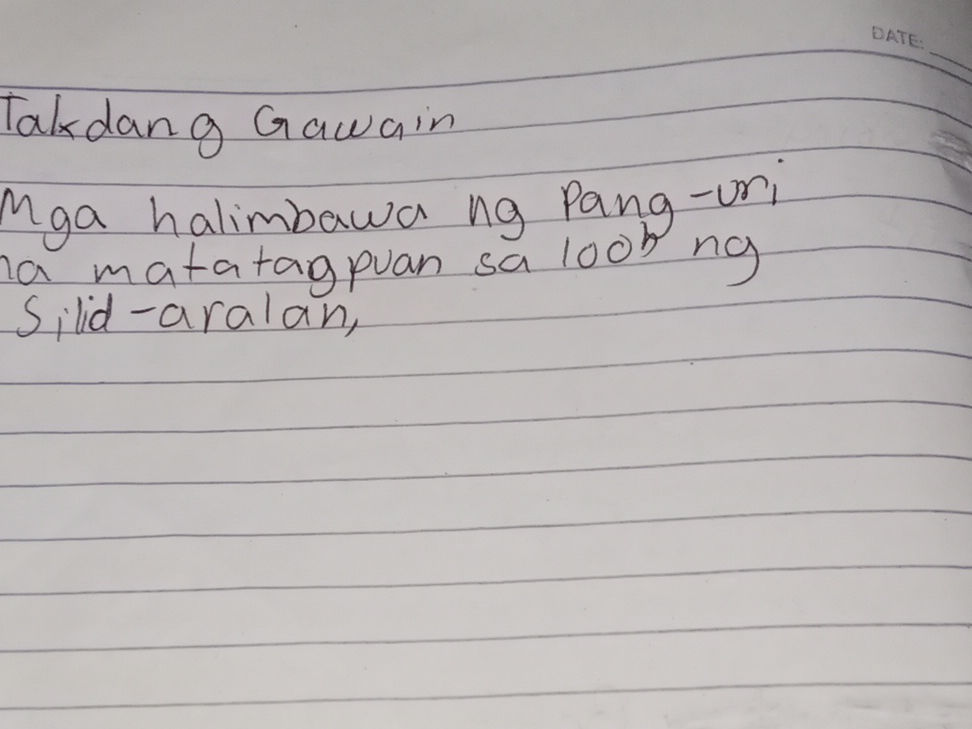 DATE:
Takdang Gawain
Mga halimbawa ng Pang-uri
na matatagpuan sa loob ng
Silid-aralan,